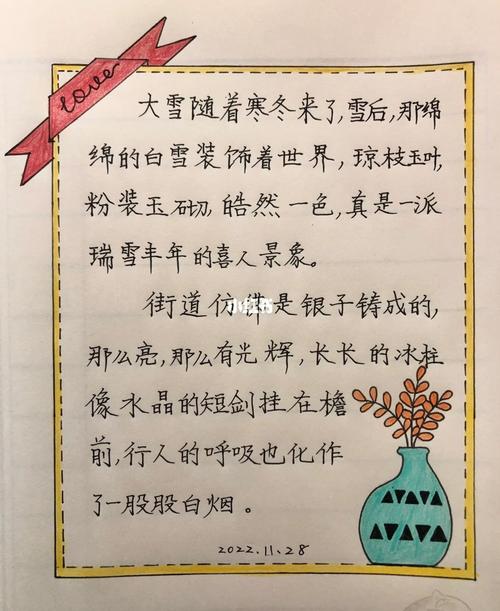 love
大雪随着寒冬来了,雪后,那绵
绵的白雪装饰着世界,琼枝玉叶,
粉装玉砌,皓然一色,真是一派
瑞雪丰年的喜人景象。
街道仿佛是银子铸成的,
那么亮,那么有光辉,长长的冰柱
像水晶的短剑挂在檐
前,行人的呼吸也化作
了一股股白烟。
2022.11.28
小红书